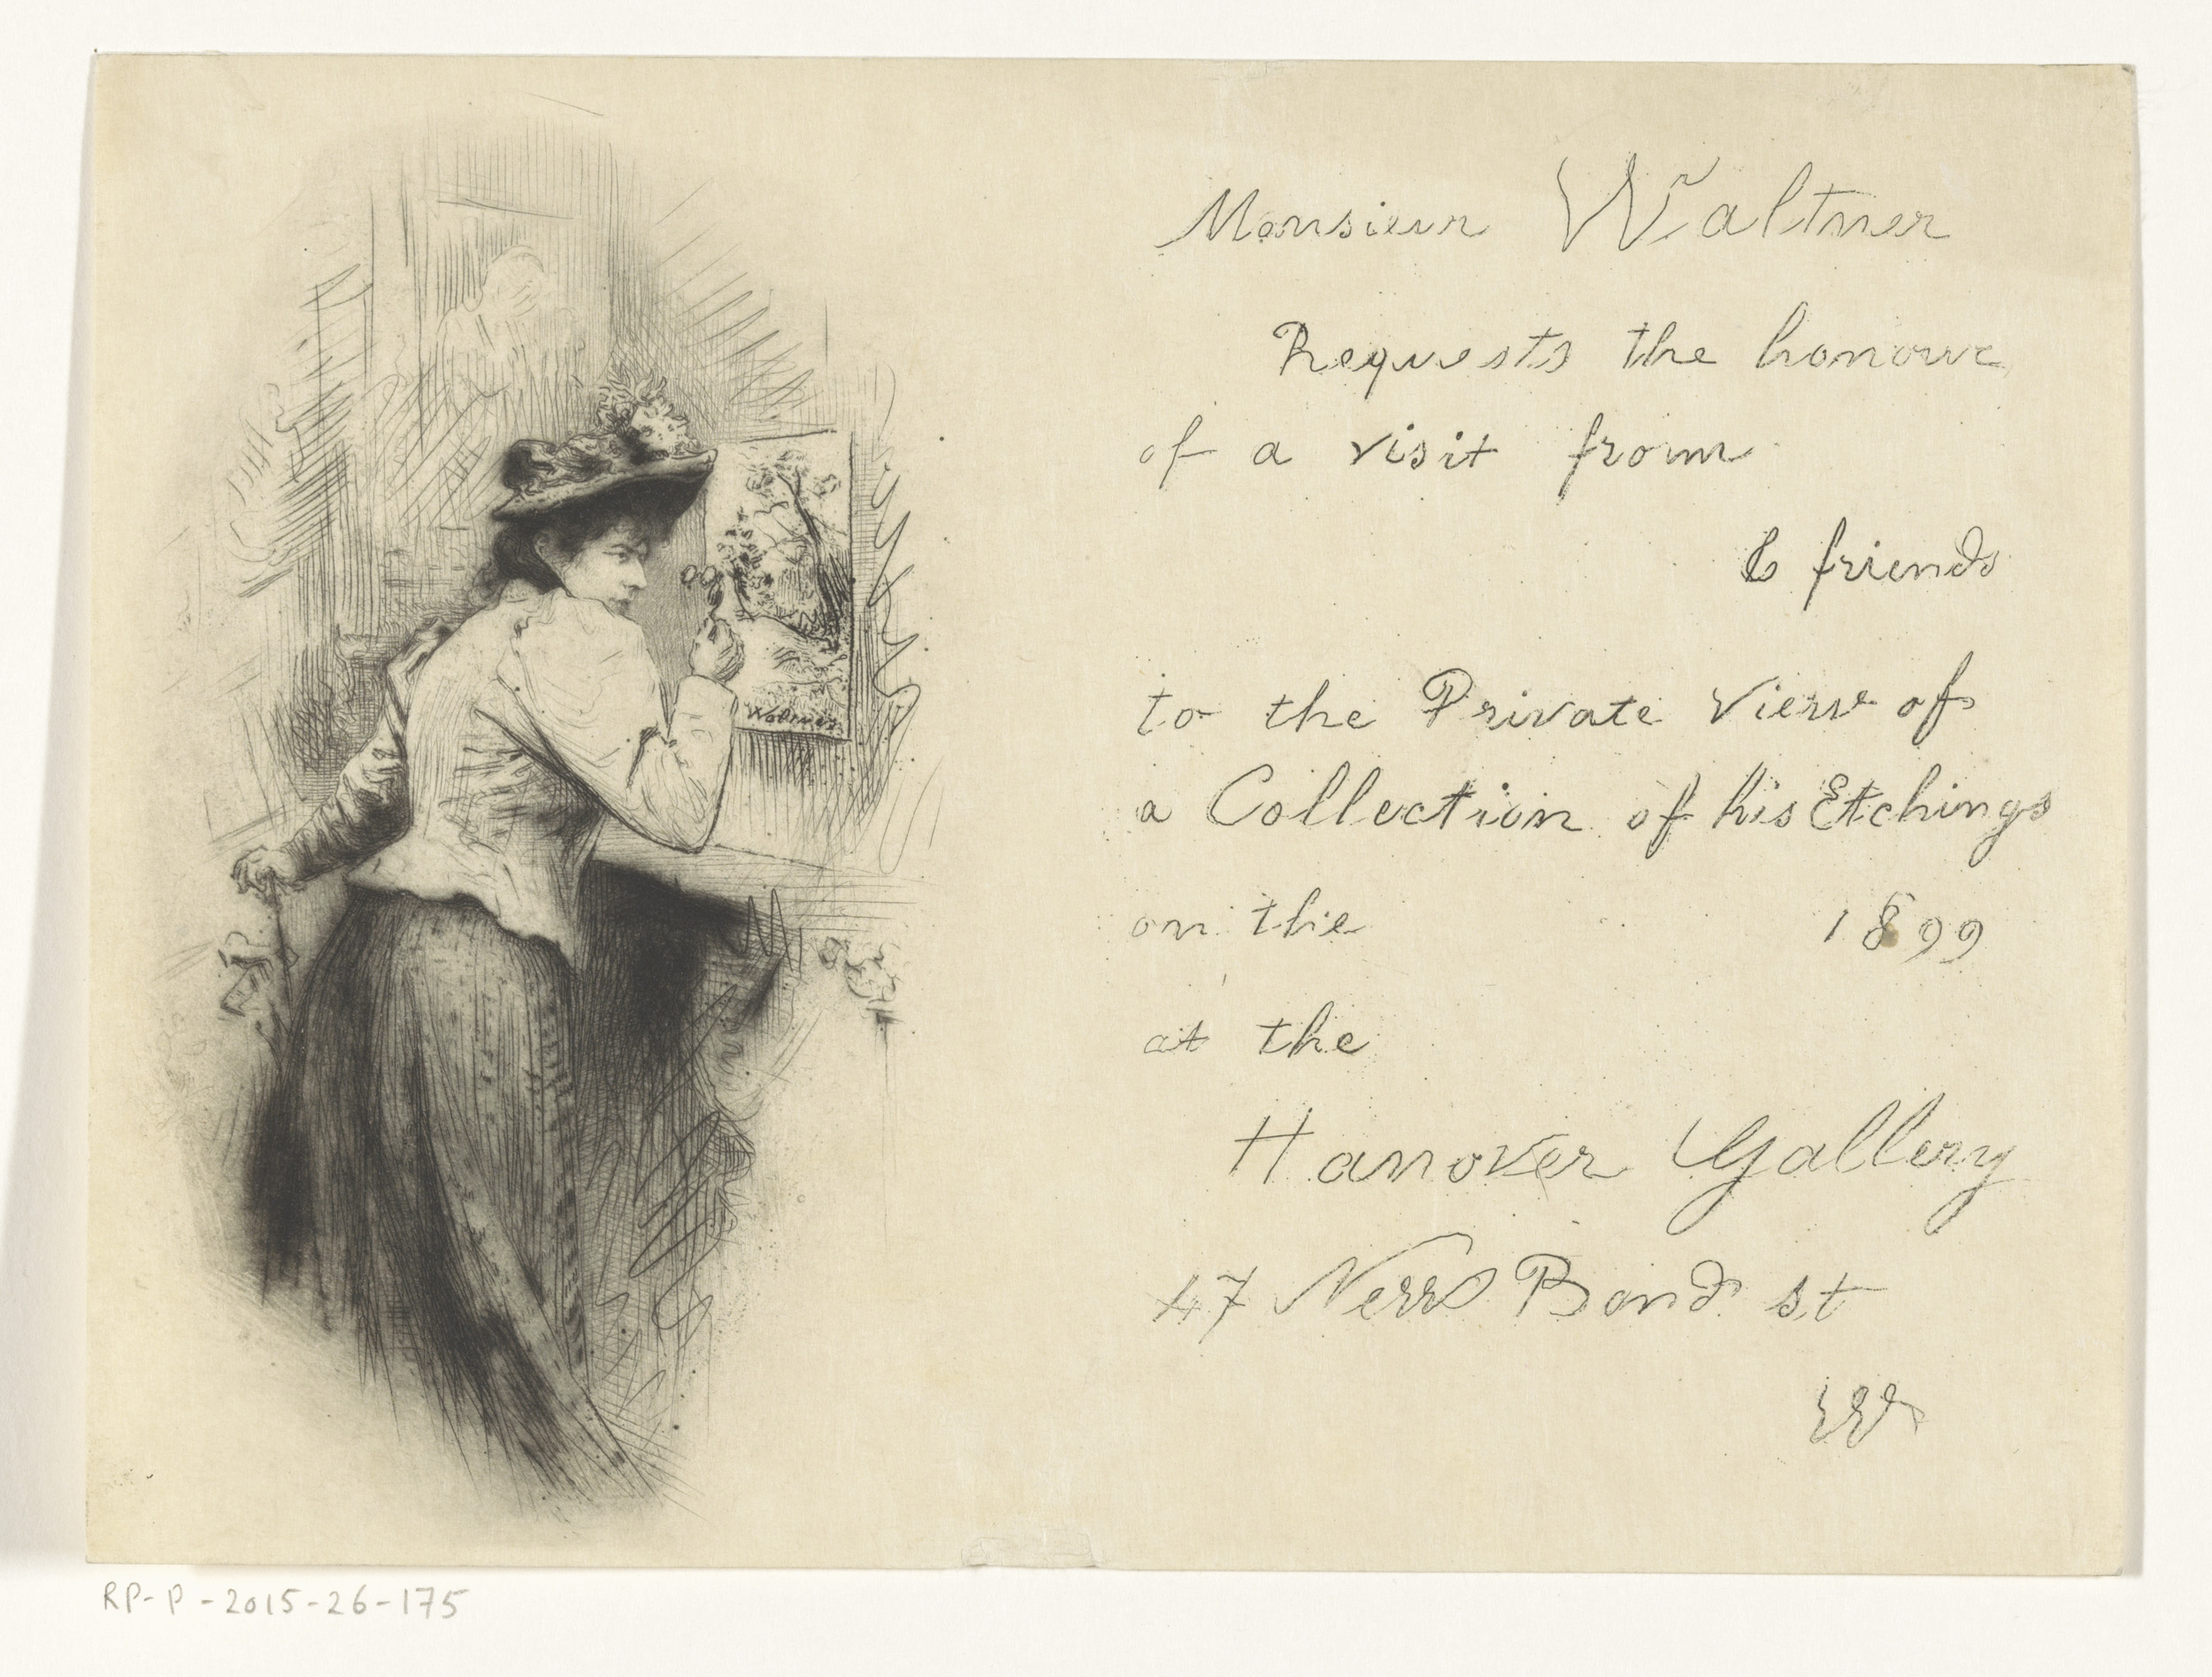 Waltner
Monsieur Waltner
Requests the honour
of a visit from
& friends
to the Private View of
a Collection of his Etchings
on the 1899
at the
Hanover Gallery
47 New Bond st
W
RP-P-2015-26-175